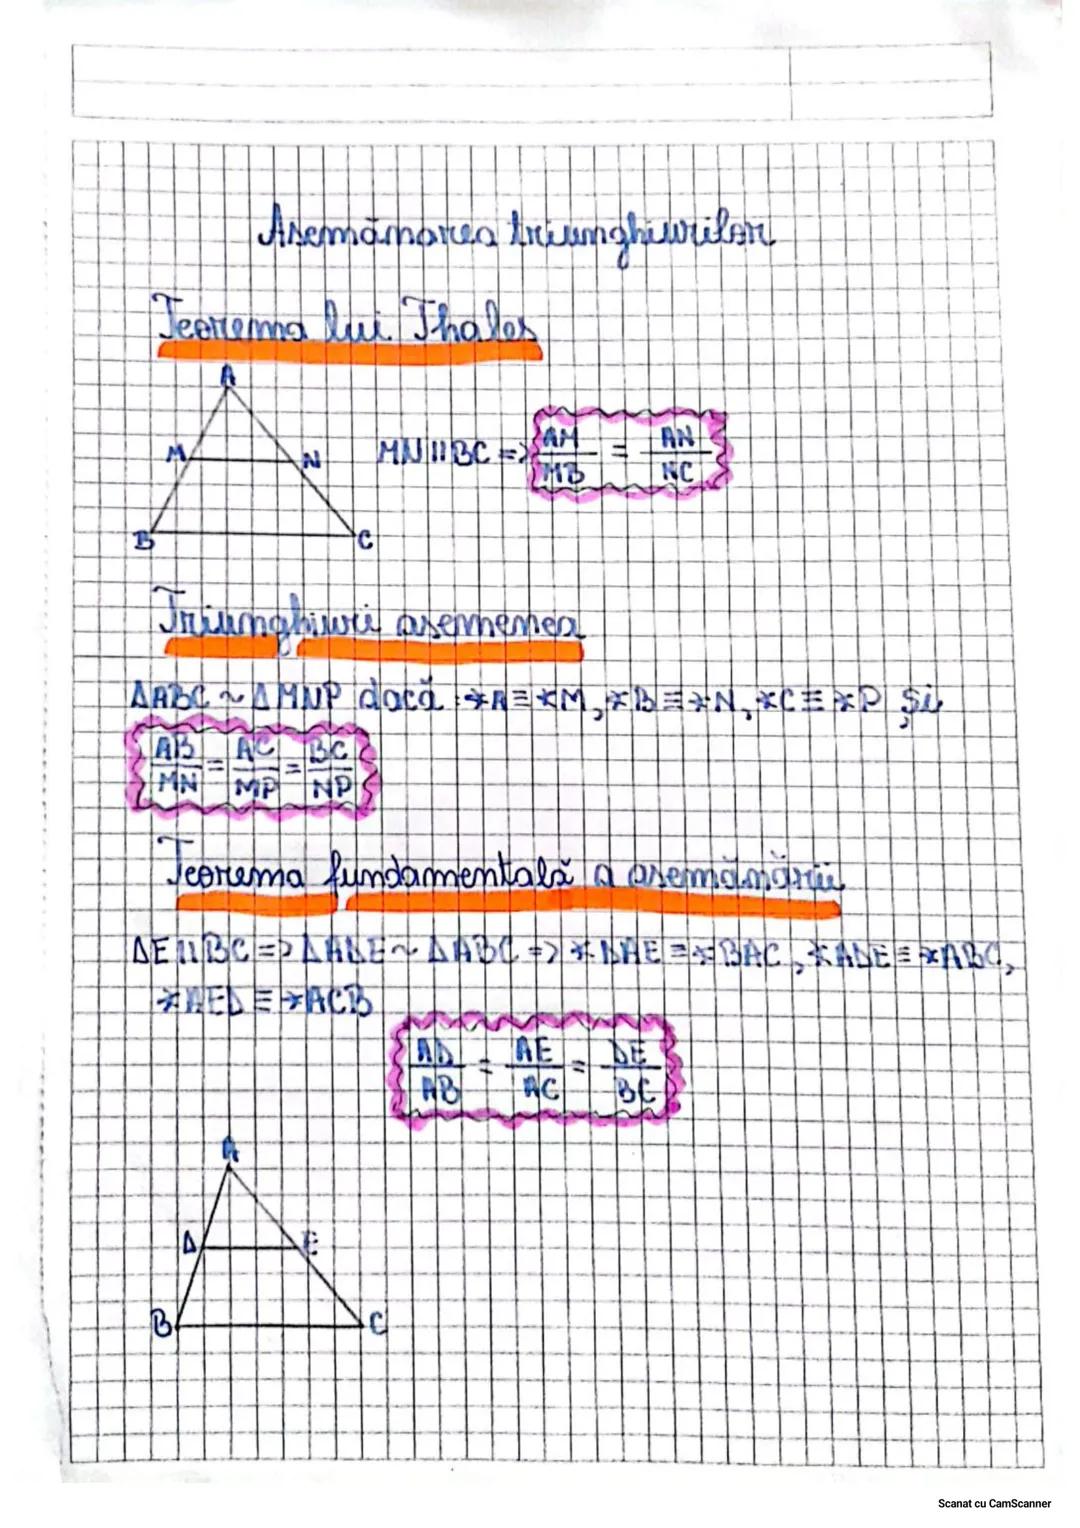 Asemănarea triunghiurilor
Teorema lui Thales
A
M N
B C
MN || BC => AM/MB = AN/NC
Triunghiuri asemenea
ΔABC ~ ΔMNP dacă : ∢A ≡ ∢M, ∢B ≡ ∢N, ∢C ≡ ∢P și
AB/MN = AC/MP = BC/NP
Teorema fundamentală a asemănării
DE || BC => ΔADE ~ ΔABC => ∢DAE ≡ ∢BAC, ∢ADE ≡ ∢ABC,
∢AED ≡ ∢ACB
AD/AB = AE/AC = DE/BC
A
D E
B C
Scanat cu CamScanner